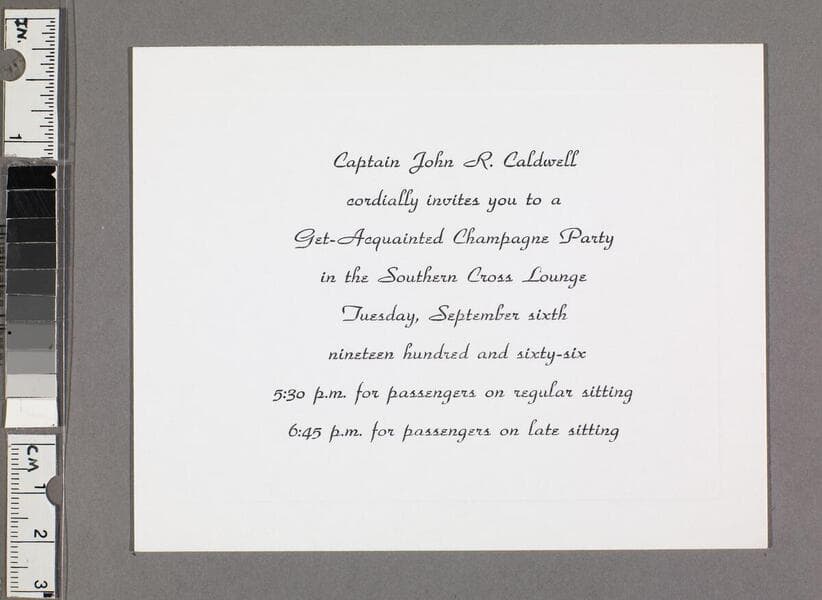 Captain John R. Caldwell
cordially invites you to a
Get-Acquainted Champagne Party
in the Southern Cross Lounge
Tuesday, September sixth
nineteen hundred and sixty-six
5:30 p.m. for passengers on regular sitting
6:45 p.m. for passengers on late sitting
IN.
1
CM
1
2
3